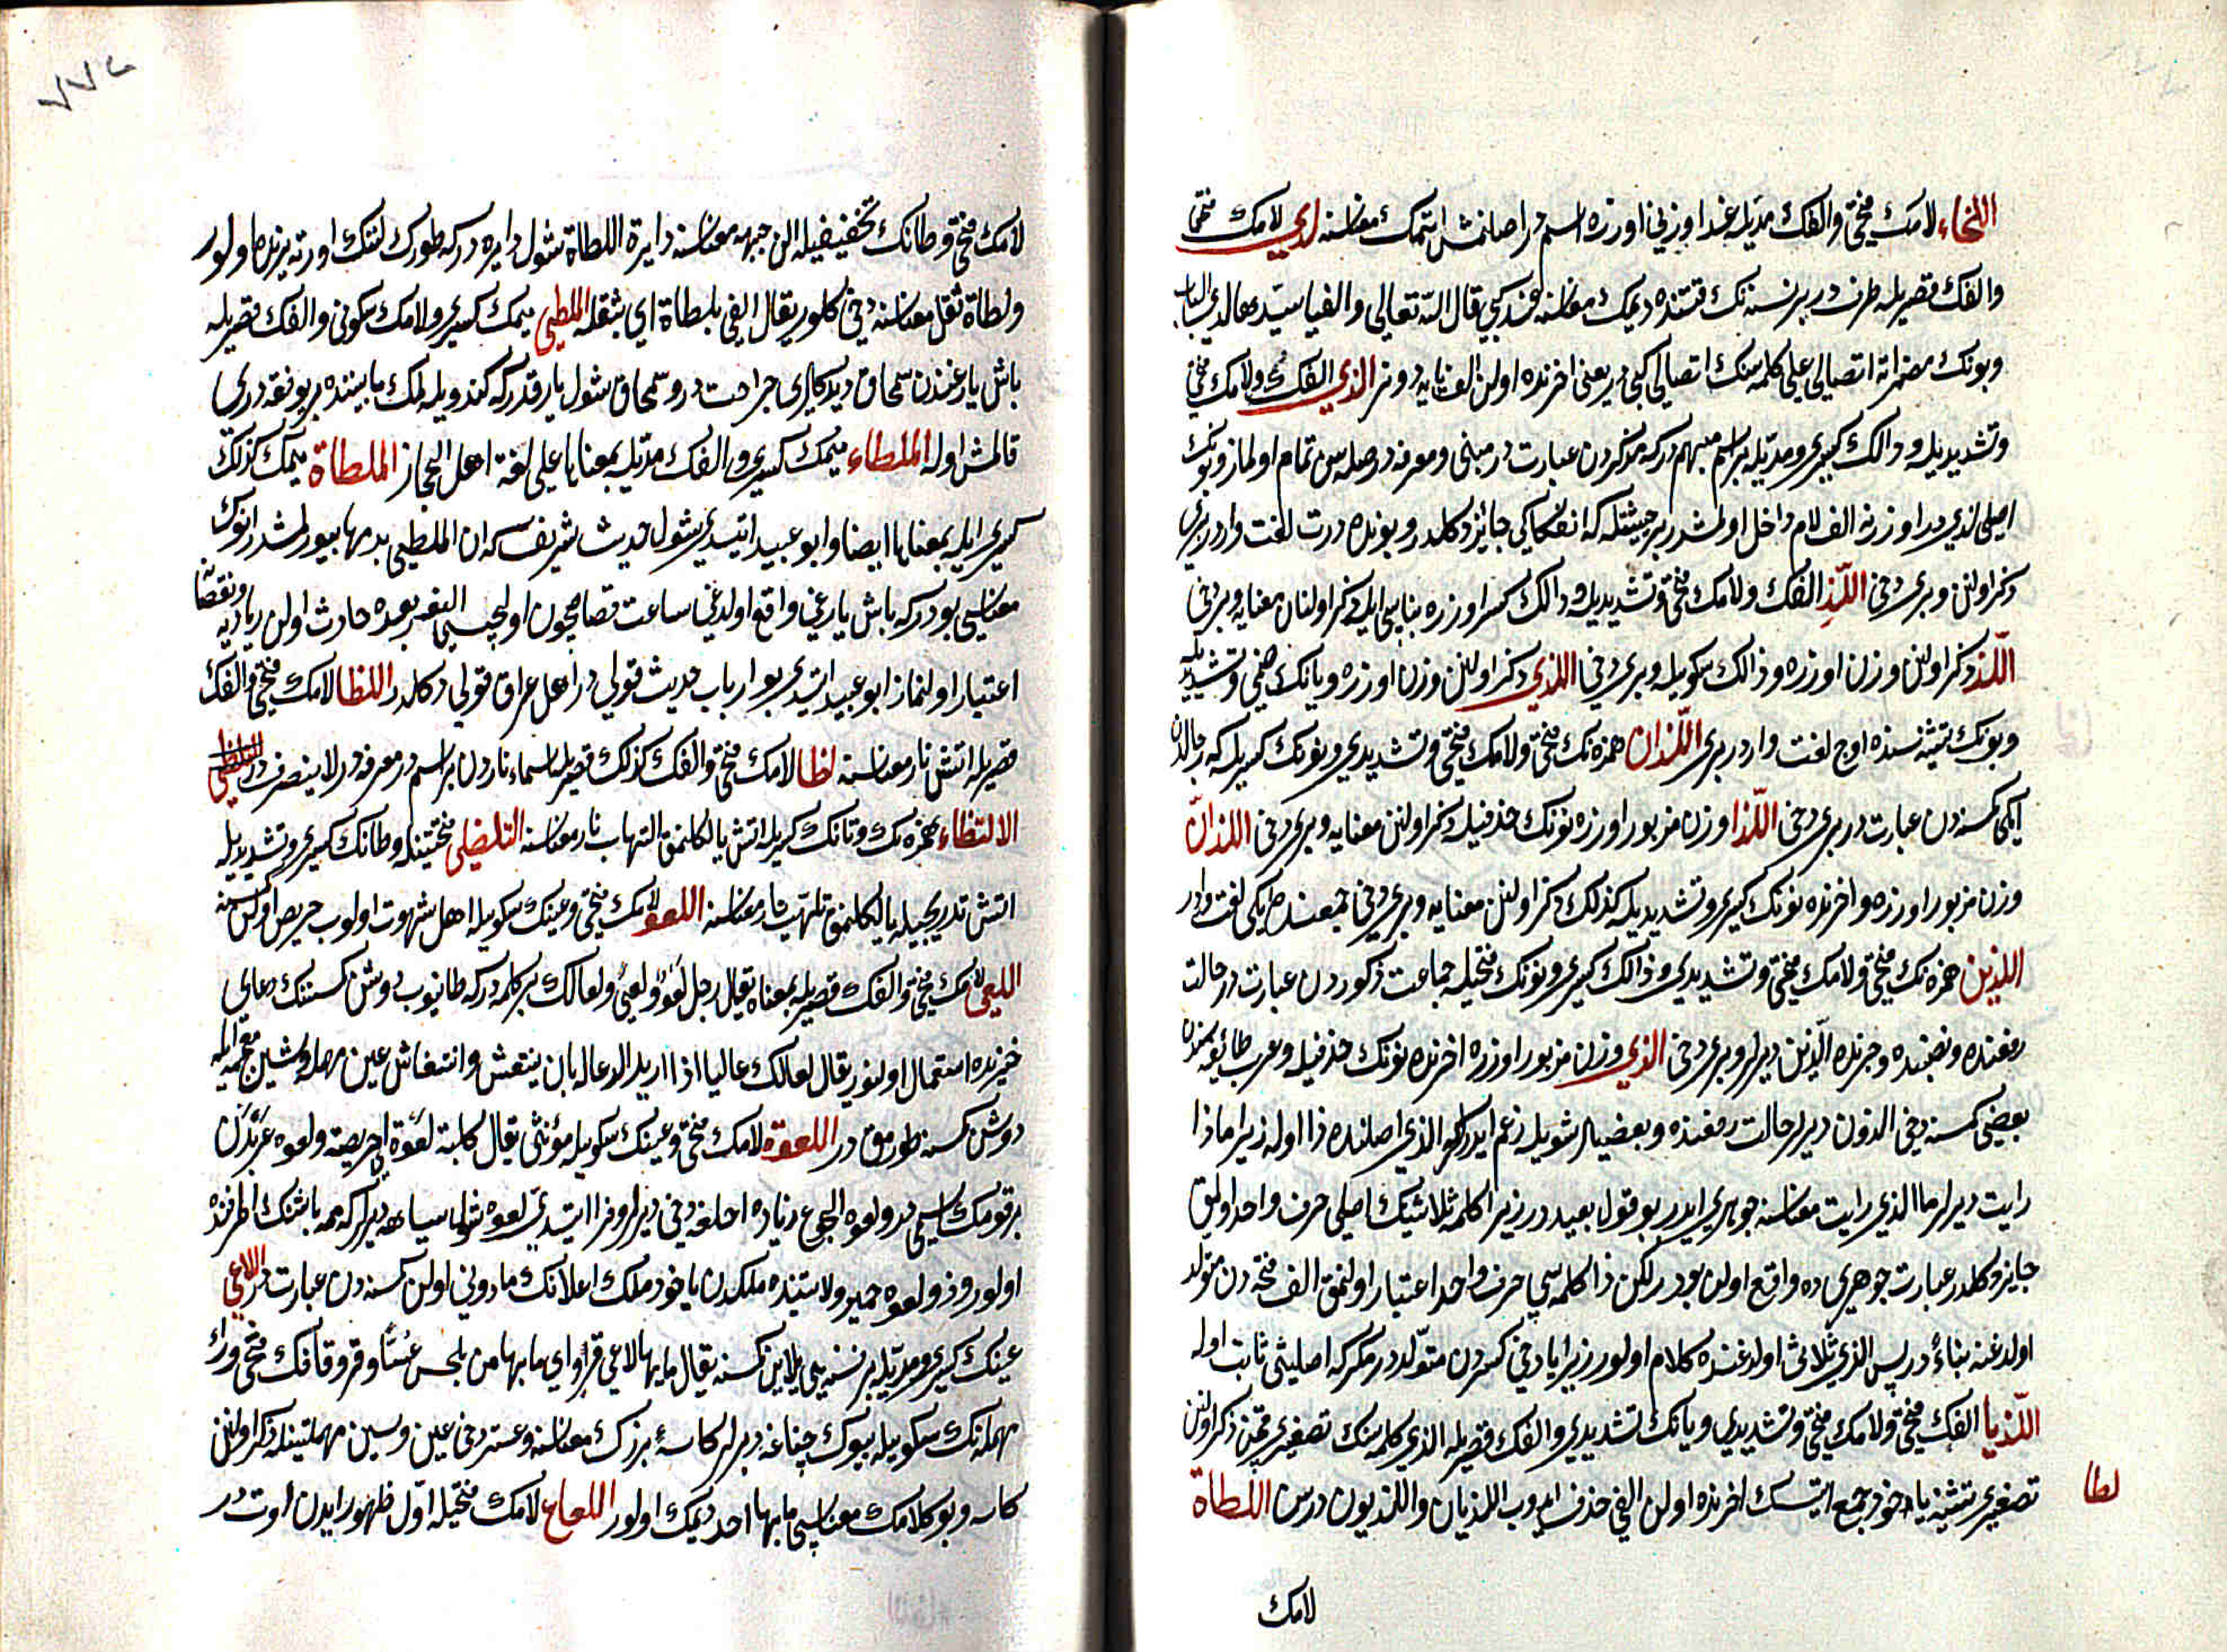 اللخاء لامك فتحى و الفك مديله غدا وزنى اوزره اسم در اصلنمش ايتمك معناسنه لدى لامك فتحى
والفك قصريله ظرف در بر نسنه نك قتنده ديمك معناسنه عند كبى قال الله تعالى والفيا سيدها لدى الباب
وبونك مضمراته اتصالى على كلمه سنك اتصالى كبى در يعنى اخرنده اولن الف يايه دونر الذى الفك ولامك فتحى
وتشديديله وذالك كسرى ومديله بر اسم مبهم در كه مذكردن عبارت در مبنى ومعرفه در صله سز تمام اولماز وبونك
اصلى لذى در اوزرنه الف لام داخل اولمشدر بر حيثيتله كه انفكاكى جائز دكلدر وبونده درت لغت واردر برى
ذكر اولنن وبرى دخى اللذ الفك ولامك فتحى وتشديديله وذالك كسر اوزره بناسى ايله ذكر اولنان معنايه وبرى دخى
اللذ ذكر اولنن وزن اوزره وذالك سكونيله وبرى دخى اللذى ذكر اولنن وزن اوزره ويانك ضمى وتشديديله
وبونك تثنيه سنده اوج لغت واردر برى اللذان همزه نك فتحى ولامك فتحى وتشديدى ونونك كسريله كه رجالدن
ايكى كمسنه دن عبارت در برى دخى اللذا وزن مزبور اوزره نونك حذفيله ذكر اولنن معنايه وبرى دخى اللذان
وزن مزبور اوزره واخرنده نونك كسرى وتشديديله كذلك ذكر اولنن معنايه وبرى دخى جمعنده ايكى لغت واردر
اللذين همزه نك فتحى ولامك فتحى وتشديدى وذالك كسرى ونونك فتحيله جماعت ذكوردن عبارت در حالت
رفعنده ونصبنده وجرنده الذين ديرلر وبرى دخى الذى وزن مزبور اوزره اخرنده نونك حذفيله وعرب طائفه سنده
بعضى كمسنه دخى الذون ديرلر حالت رفعنده وبعضيلر شويله زعم ايدرلر كه الذى اصلنده ذا اوله زيرا ماذا
رايت ديرلر ما الذى رايت معناسنه جوهرى ايدر بو قول بعيد در زيرا كلمه ثلاثينك اصلى حرف واحد اولمق
جايز دكلدر عبارت جوهرى ده واقع اولن بودر لكن ذا كلمه سى حرف واحد اعتبار اولنمق الف فتحه دن متولد
اولدغنه بناء در پس الذى ثلاثى اولدغنده كلام اولور زيرا يا دخى كسره دن متولد در مكر كه اصليتى ثابت اوله
اللذيا الفك فتحى ولامك فتحى وتشديدى ويانك تشديدى والفك قصريله الذى كلمه سنك تصغيرى قچن ذكر اولنن
تصغيرى تثنيه ياخود جمع ايتسك اخرنده اولن الفى حذف ايدوب اللذيان واللذيون درسن اللطاة
لطا
لامك
٧٧٤
لامك فتحى وطانك تخفيفيله الن جبهه معناسنه دايرة اللطاة شول دايره در كه طورك لتنك اورته يرنده اولور
ولطاة ثقل معناسنه دخى كلور يقال القى بلطاة اى بثقله الملطى ميمك كسرى ولامك سكونى والفك قصريله
باش يارغندن سمحاق ديدكلرى جراحت در وسمحاق شول ياره در كه كندويله كمك مابيننده بر يوفقه درى
قالمش اوله الملطاء ميمك كسرى والفك مديله بمعناها على لغة اهل الحجاز الملطاة ميمك كذلك
كسرى ايله بمعناها ايضا وابو عبيد ايتدى شول حديث شريف كه ان الملطى بدمها بيورلمشدر انوك
معناسى بودر كه باش يارغى واقع اولدغى ساعت قصاصچون اولچيلى انلر بعده حادث اولن زياديه ونقصانه
اعتبار اولنماز ابو عبيد ايتدى بو ارباب حديث قولى در اهل عراق قولى دكلدر اللظا لامك فتحى والفك
قصريله اتش نار معناسنه لظا لامك فتحى والفك كذلك قصريله اسماء ناردن بر اسم در معرفه در لا ينصرف در
الالتظاء همزه نك وتانك كسريله اتش يالكلنمق التهاب نار معناسنه التلظى فتحتينله وظانك كسرى وتشديديله
اتش تدريجيله يالكلنمق تلهب نار معناسنه اللعو لامك فتحى وعينك سكونيله اهل شهوت اولوب حريص اولن كمسنه
اللعى لامك فتحى والفك قصريله بمعناه يقال رجل لعو ولعى ولعالك بر كلمه در كه طانيوب دوشن كمسنه نك دعاى
خيرنده استعمال اولنور يقال لعالك عاليا اذا اريد الدعاله بان ينتعش وانتعاش عين مهمله وشين معجمه ايله
دوشن كمسنه طورمق در اللعوة لامك فتحى وعينك سكونيله مؤنثى يقال كلبة لعوة اى حريصة ولعوه عربدن
بر قومك اسمى در ولعوه الجوع زياده اجلغه دخى ديرلر وفرا ايتدى لعوه شول سياهه ديرلر كه ممه باشنك اطرافنده
اولور وذو لعوه حمير ولايتنده ملكدن ياخود ملك اعلانك مادونى اولن كمسنه دن عبارت در اللاعى
عينك كسرى ومديله بر نسنه يى يلاين كمسنه يقال مابها لاعى قرو اى مابها من يلحس عسا وقرو قافك فتحى وراى
مهمله نك سكونيله بيوك چناغه ديرلر كاسهٔ بزرك معناسنه وعس دخى عين وسين مهملتينله ذكر اولنن
كاسه وبو كلامك معناسى مابها احد ديمك اولور اللعاع لامك فتحيله اول ظهور ايدن اوت در